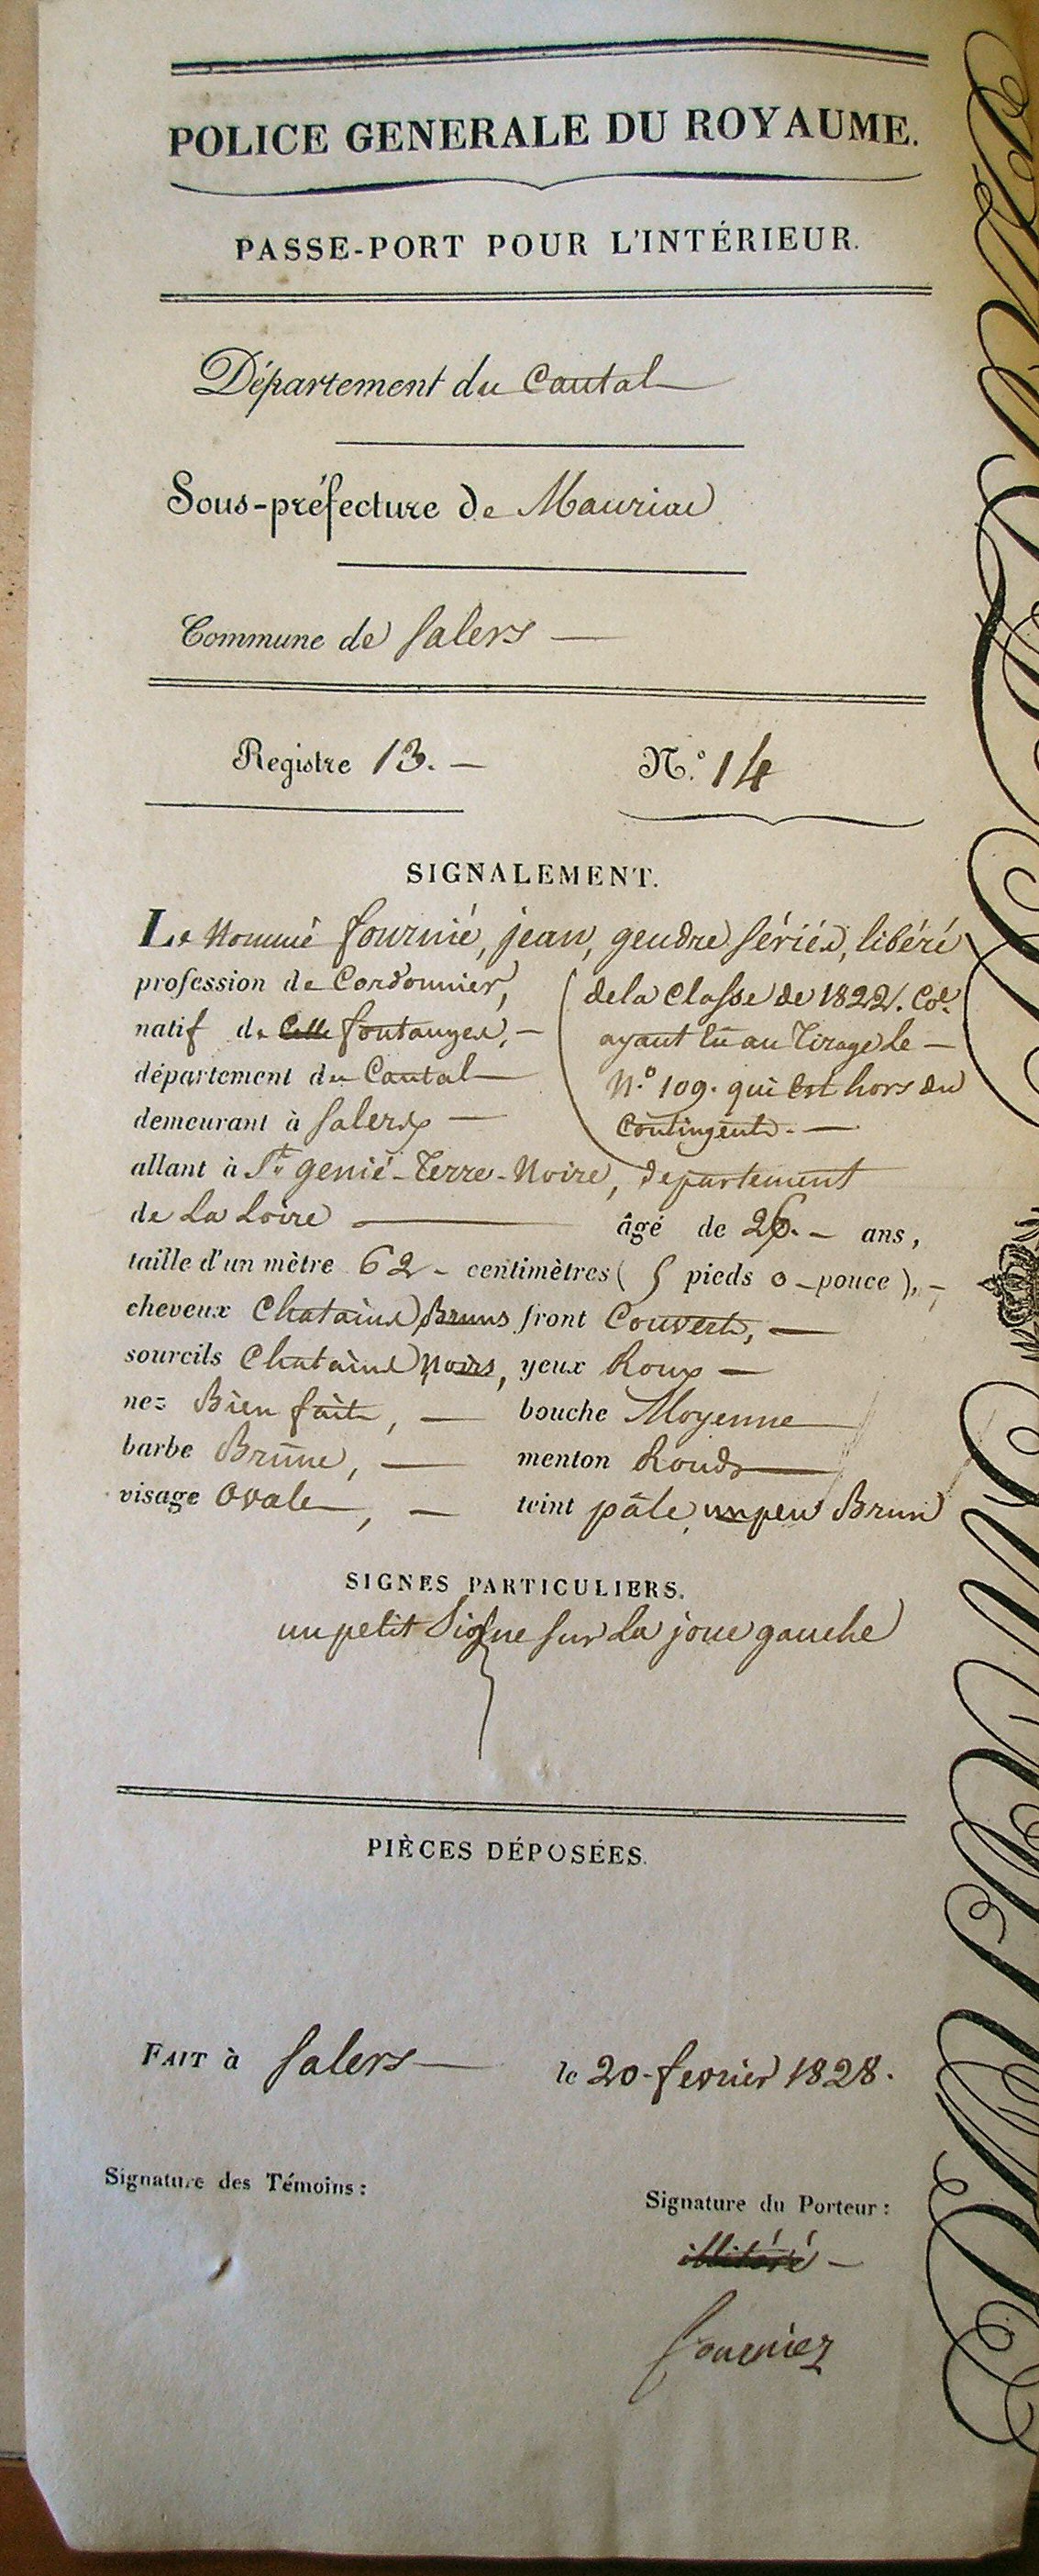 POLICE GENERALE DU ROYAUME.
PASSE-PORT POUR L'INTÉRIEUR.
Département du Cantal
Sous-préfecture de Mauriac
Commune de Salers
Registre 13. N.º 14
SIGNALEMENT.
Le Nommé fournié, jean, gendre Sériés, libéré
profession de Cordonnier, de la Classe de 1822.
natif de fontanges, ayant Eü au Tirage Le
département du Cantal N.º 109. qui Est hors du
demeurant à Salers Contingent.
allant à St genié-Terre-Noire, departement
de La Loire âgé de 26. ans,
taille d'un mètre 62 centimètres ( 5 pieds 0 pouce ),
cheveux Chatains Bruns front Couvert,
sourcils Chatains Noirs, yeux Roux
nez Bien fait, bouche Moyenne
barbe Brune, menton Rond
visage Ovale, teint pâle, un peu Brun
SIGNES PARTICULIERS.
un petit Signe sur La joue gauche
PIÈCES DÉPOSÉES.
FAIT à Salers le 20 fevrier 1828.
Signature des Témoins :
Signature du Porteur :
illitéré
fournier